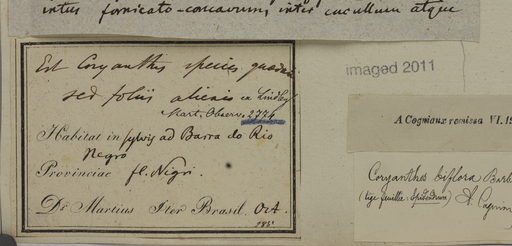 intus fornicato-concavum, inter cucullum atque
Est Coryanthis species quaedam
sed foliis alienis ex Lindley
Mart. Observ. 2774
Habitat in sylvis ad Barra do Rio
Negro
Provinciae fl. Nigri.
Dr Martius Iter Brasil. Oct.
imaged 2011
A Cogniaux remissa VI. 
Coryanthes biflora Barb
(tige feuillée: Epidendrum) A. Cogniaux